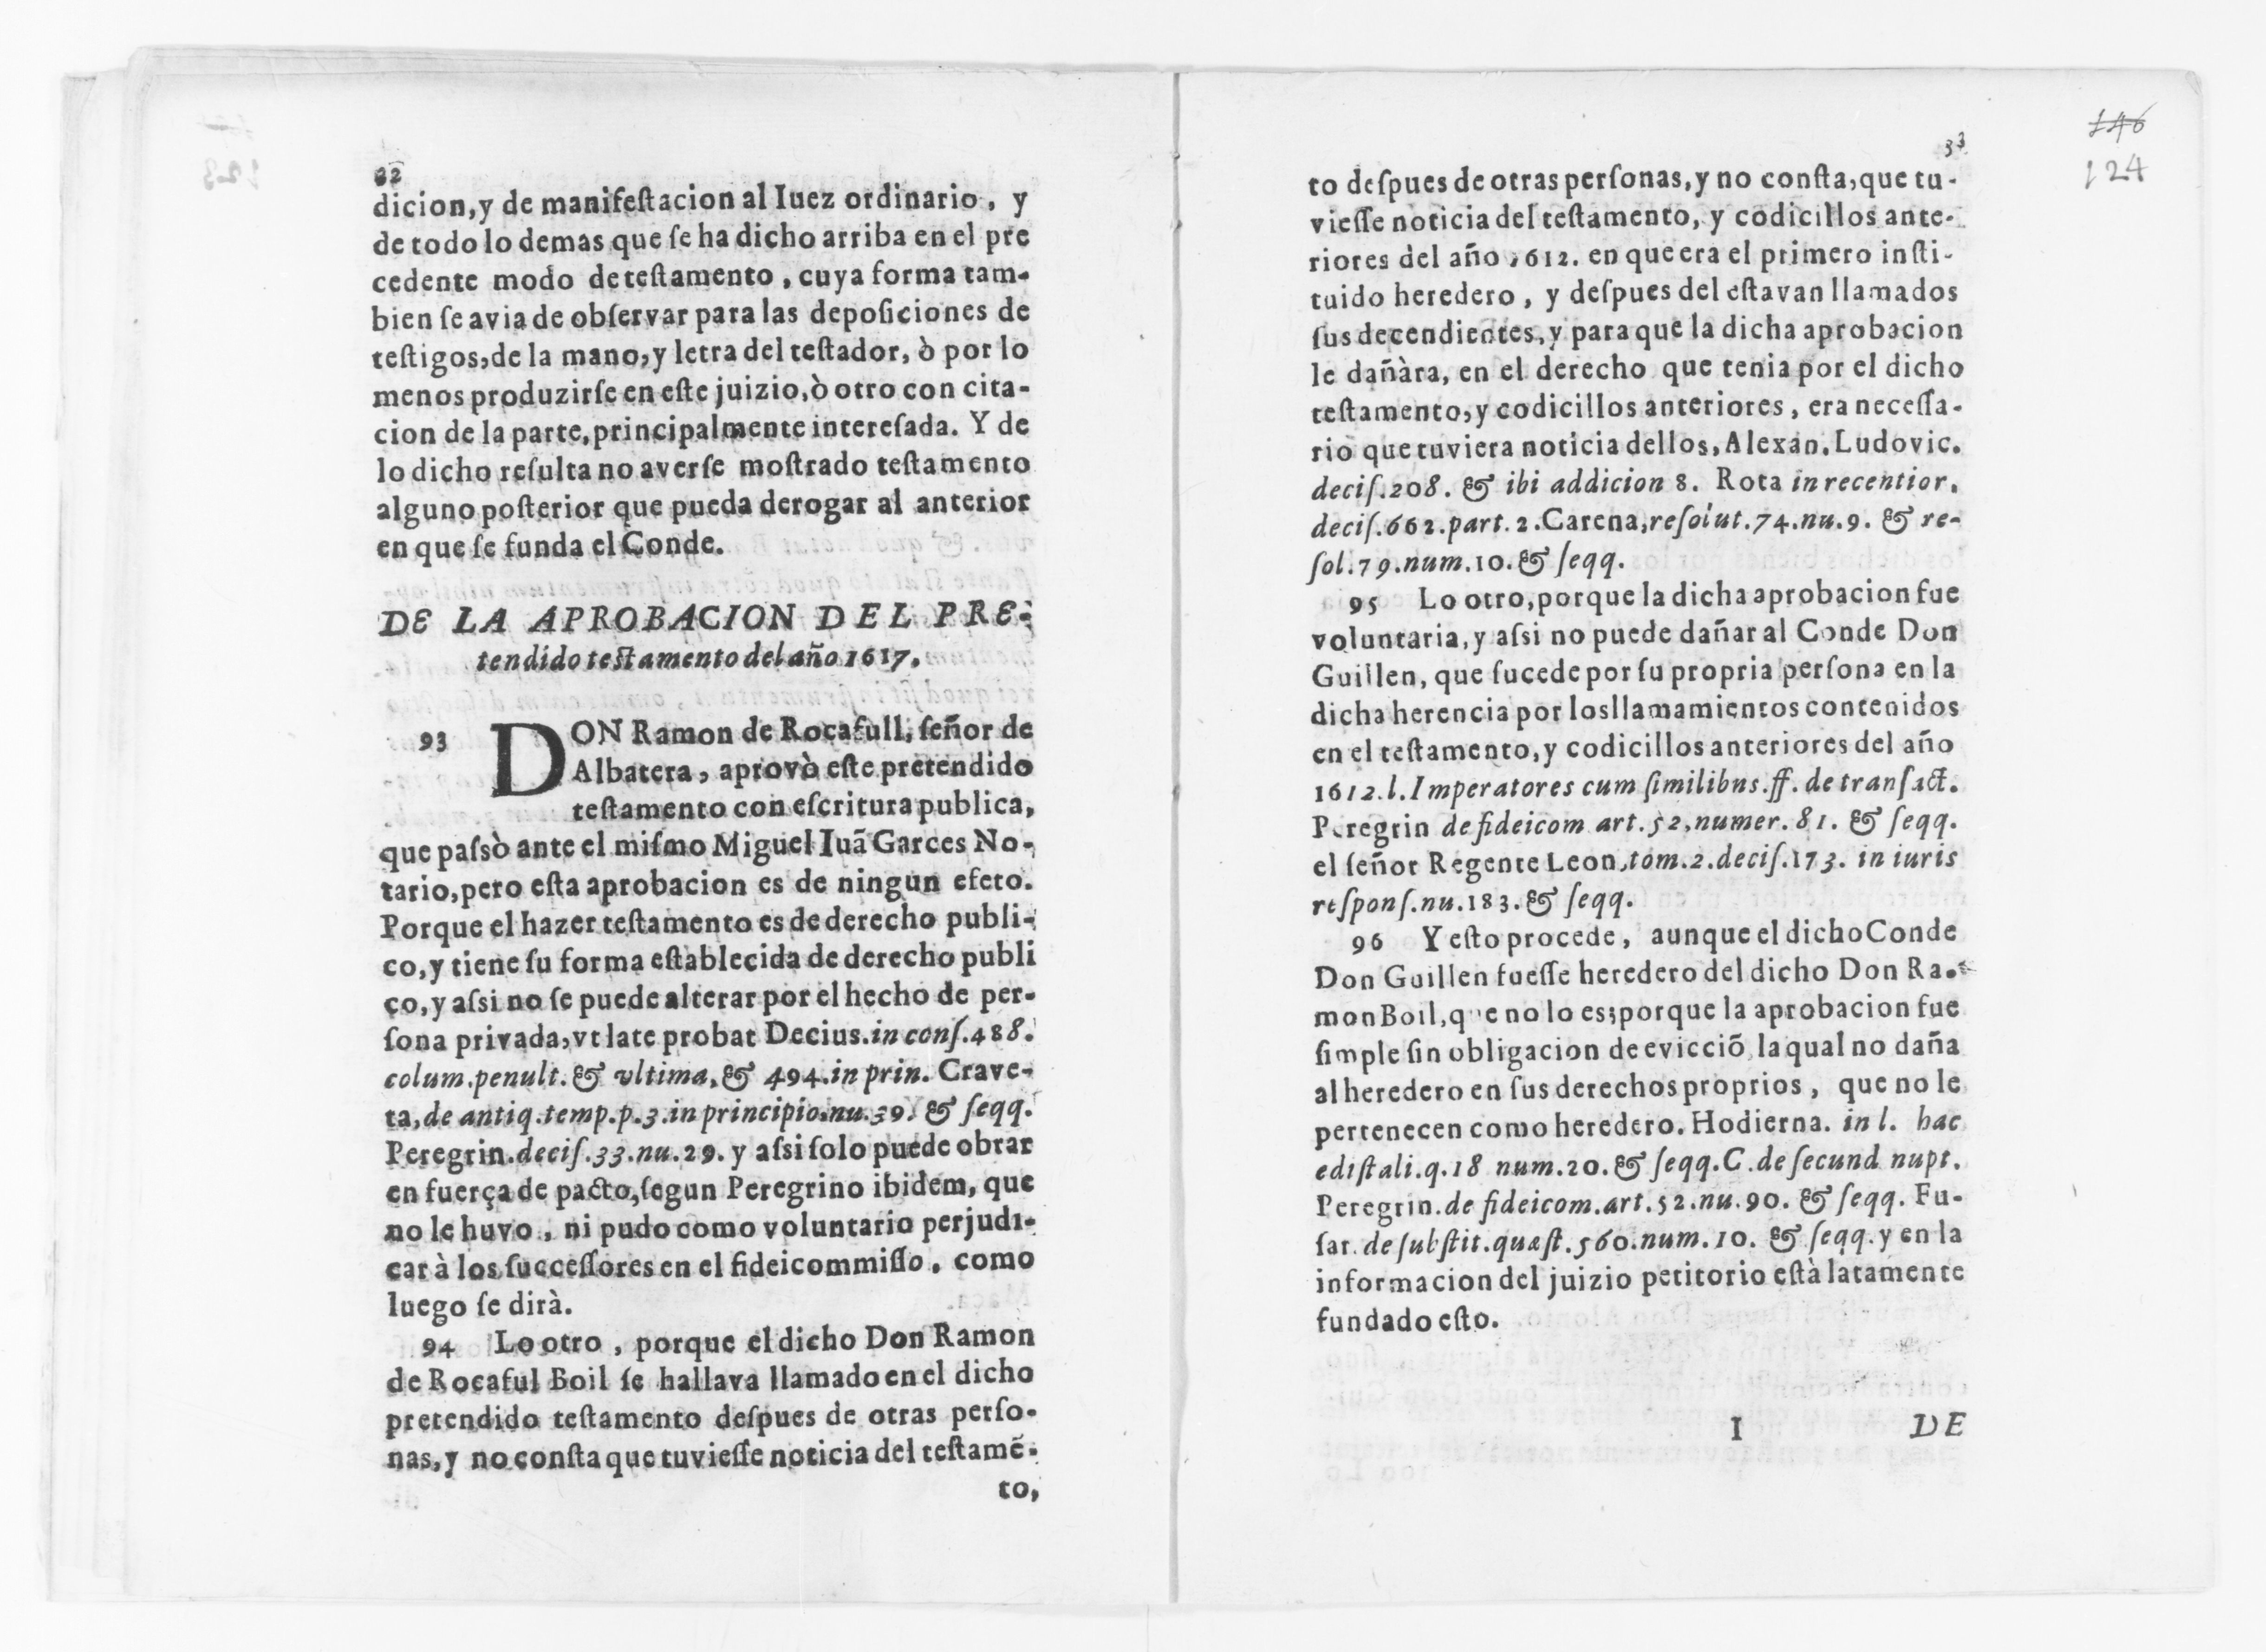 32
dicion, y de manifeſtacion al Iuez ordinario, y
de todo lo demas que ſe ha dicho arriba en el pre
cedente modo de teſtamento, cuya forma tam-
bien ſe avia de obſervar para las depoſiciones de
teſtigos, de la mano, y letra del teſtador, ò por lo
menos produzirſe en eſte juizio, ò otro con cita-
cion de la parte, principalmente intereſada. Y de
lo dicho reſulta no averſe moſtrado teſtamento
alguno poſterior que pueda derogar al anterior
en que ſe funda el Conde.
DE LA APROBACION DEL PRE-
tendido teſtamento del año 1617.
93 DON Ramon de Rocafull, ſeñor de
Albatera, aprovò eſte pretendido
teſtamento con eſcritura publica,
que paſsò ante el miſmo Miguel Iuã Garces No-
tario, pero eſta aprobacion es de ningun efeto.
Porque el hazer teſtamento es de derecho publi-
co, y tiene ſu forma eſtablecida de derecho publi
co, y aſsi no ſe puede alterar por el hecho de per-
ſona privada, vt late probat Decius. in conſ. 488.
colum. penult. & vltima, & 494. in prin. Crave-
ta, de antiq. temp. p. 3. in principio. nu. 39. & ſeqq.
Peregrin. deciſ. 33. nu. 29. y aſsi ſolo puede obrar
en fuerça de pacto, ſegun Peregrino ibidem, que
no le huvo, ni pudo como voluntario perjudi-
car à los ſucceſſores en el fideicommiſſo, como
luego ſe dirà.
94 Lo otro, porque el dicho Don Ramon
de Rocaful Boil ſe hallava llamado en el dicho
pretendido teſtamento deſpues de otras perſo-
nas, y no conſta que tuvieſſe noticia del teſtamẽ-
to,
33
146
124
to deſpues de otras perſonas, y no conſta, que tu-
vieſſe noticia del teſtamento, y codicillos ante-
riores del año 1612. en que era el primero inſti-
tuido heredero, y deſpues del eſtavan llamados
ſus decendientes, y para que la dicha aprobacion
le dañàra, en el derecho que tenia por el dicho
teſtamento, y codicillos anteriores, era neceſſa-
rio que tuviera noticia dellos, Alexan. Ludovic.
deciſ. 208. & ibi addicion 8. Rota in recentior.
deciſ. 662. part. 2. Carena, reſolut. 74. nu. 9. & re-
ſol. 79. num. 10. & ſeqq.
95 Lo otro, porque la dicha aprobacion fue
voluntaria, y aſsi no puede dañar al Conde Don
Guillen, que ſucede por ſu propria perſona en la
dicha herencia por los llamamientos contenidos
en el teſtamento, y codicillos anteriores del año
1612. l. Imperatores cum ſimilibus. ff. de tranſact.
Peregrin de fideicom art. 52, numer. 81. & ſeqq.
el ſeñor Regente Leon, tom. 2. deciſ. 173. in iuris
reſponſ. nu. 183. & ſeqq.
96 Y eſto procede, aunque el dicho Conde
Don Guillen fueſſe heredero del dicho Don Ra-
mon Boil, que no lo es; porque la aprobacion fue
ſimple ſin obligacion de evicciõ, la qual no daña
al heredero en ſus derechos proprios, que no le
pertenecen como heredero. Hodierna. in l. hac
edictali. q. 18 num. 20. & ſeqq. C. de ſecund nupt.
Peregrin. de fideicom. art. 52. nu. 90. & ſeqq. Fu-
ſar. de ſubſtit. quæſt. 560. num. 10. & ſeqq. y en la
informacion del juizio petitorio eſtà latamente
fundado eſto.
I DE